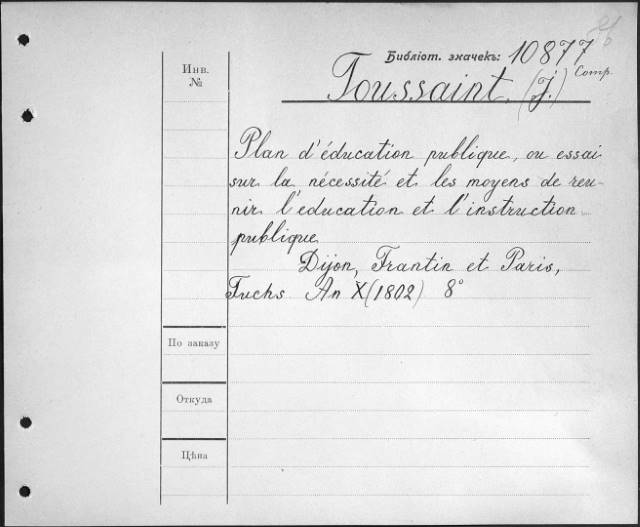 Библіот. значекъ: 10877
Comp.
Инв. №
Toussaint, (J.)
Plan d'éducation publique, ou essai
sur la nécessité et les moyens de reu-
nir l'education et l'instruction
publique
Dijon, Frantin et Paris,
Fuchs An X (1802) 8°
По заказу
Откуда
Цѣна